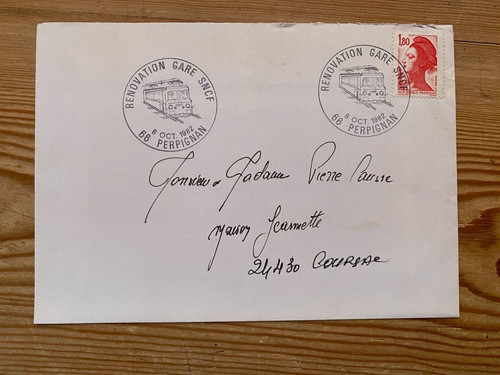 RENOVATION GARE SNCF
8 OCT. 1982
66 PERPIGNAN
RENOVATION GARE SNCF
8 OCT. 1982
66 PERPIGNAN
1,80
Monsieur et Madame Pierre Causse
Maison Jeannette
24430 COURSAC